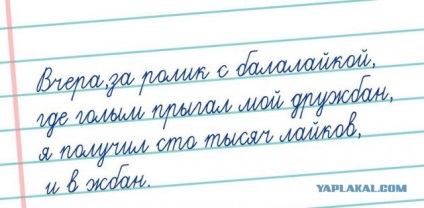 Вчера,за ролик с балалайкой,
где голым прыгал мой дружбан,
я получил сто тысяч лайков,
и в жбан.
YAPLAKAL.COM